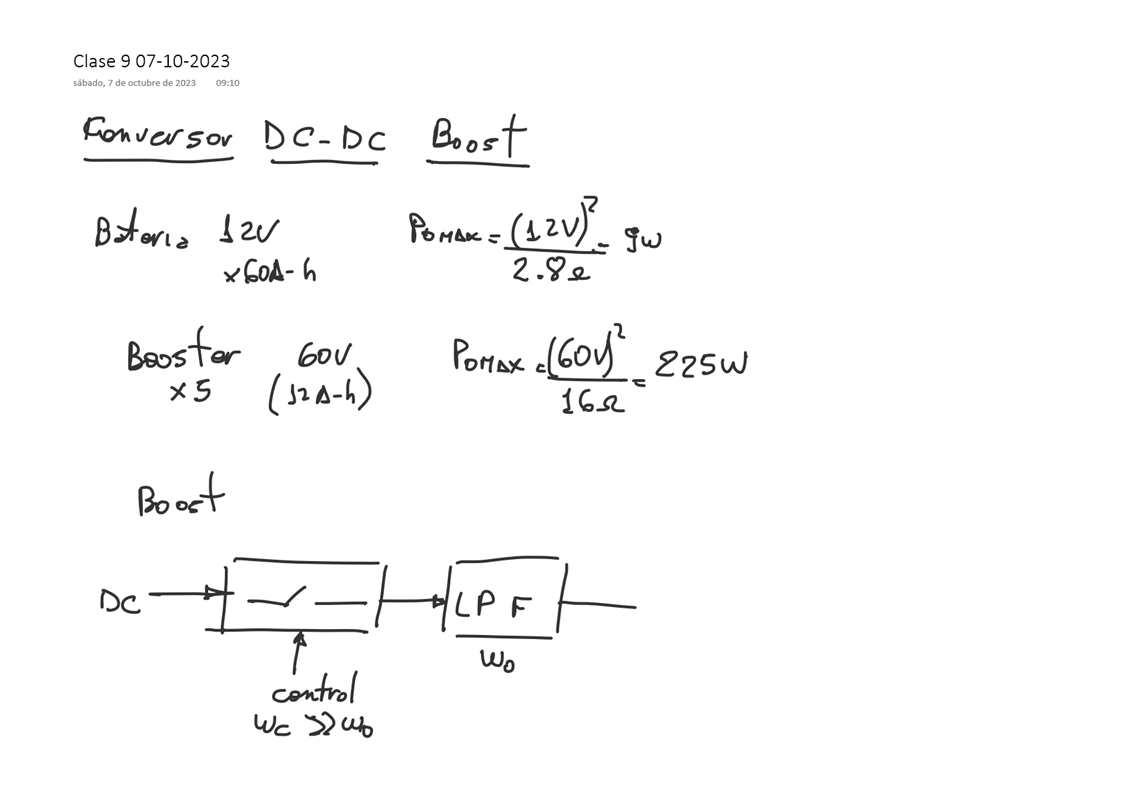 Clase 9 07-10-2023
sábado, 7 de octubre de 2023 09:10
Conversor DC-DC Boost
Bateria 12V
x60A-h
PoMAX = (12V)² / 2.8Ω = 9W
Booster 60V
x5 (12A-h)
PoMAX = (60V)² / 16Ω = 225W
Boost
DC
LPF
wo
control
wc >> wo